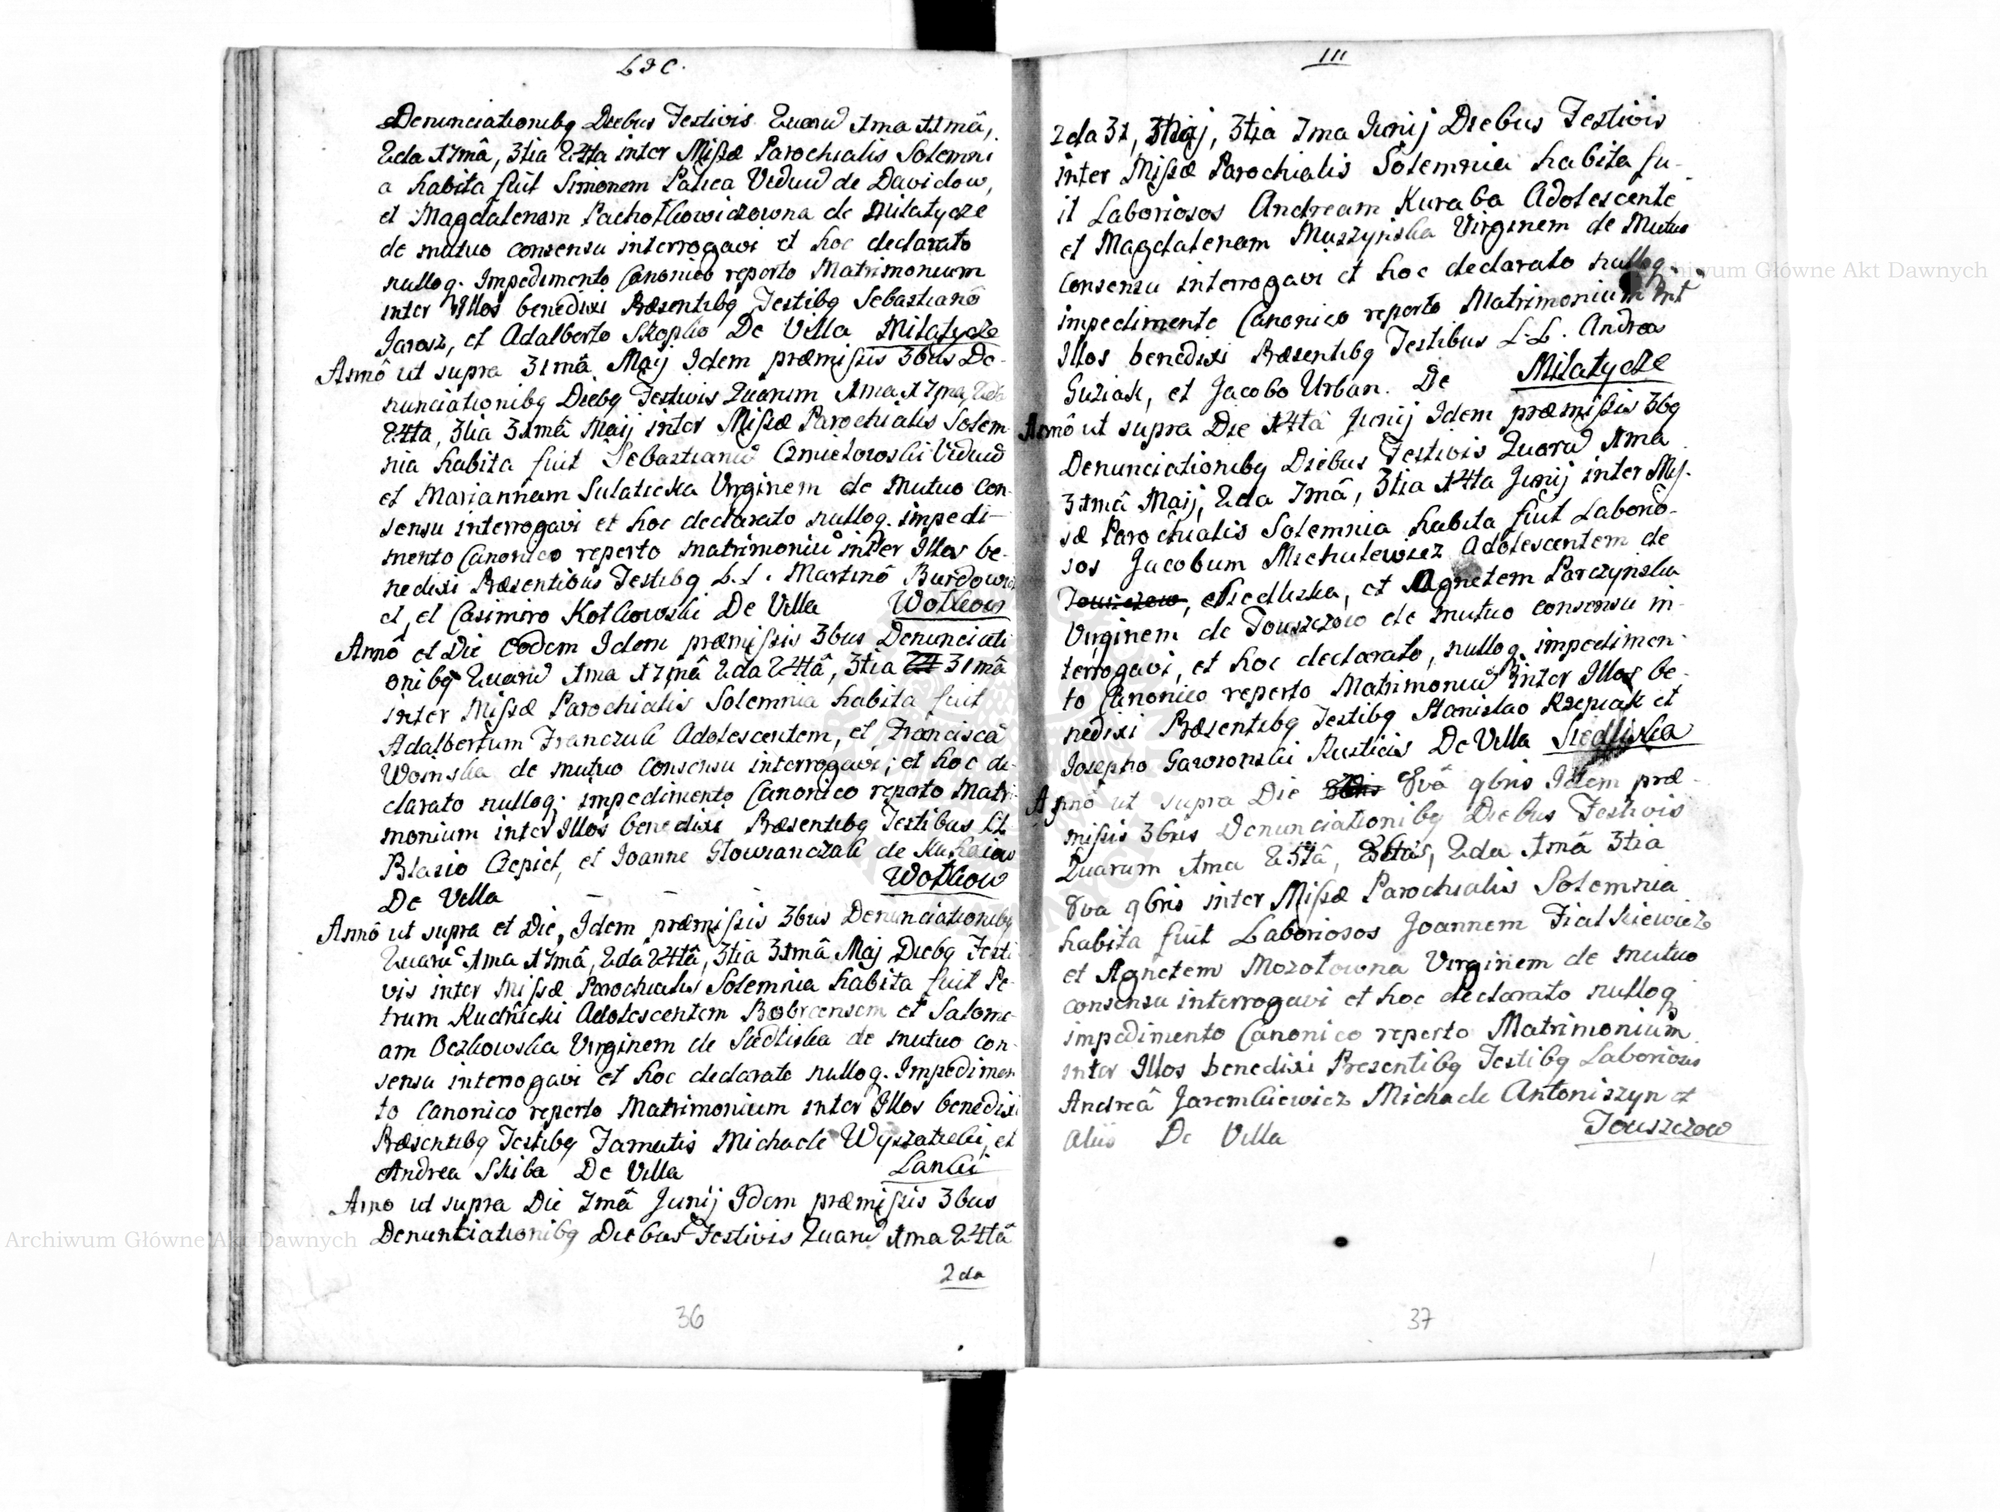 Denunciationibq Diebus Festivis Quarũ 1ma 11mâ,
2da 17mâ, 3tia 24ta inter Missæ Parochialis Solemni
a habita fuit Simonem Palica Viduũ de Davidow,
et Magdalenam Pachotkowiczowna de Milatycze
de mutuo consensu interrogavi et hoc declarato
nulloq. Impedimento Canonico reperto Matrimonium
inter Illos benedixi Præsentibq Testibq Sebastianô
Jarosz, et Adalberto Skopko De Villa Milatycze
Annô ut supra 31mâ Maij Idem præmissis 3bus De-
nunciationibq Diebq Festivis Quarum 1ma 17ma 2da
24ta, 3tia 31mâ Maij inter Missæ Parochialis Solem-
nia habita fuit Sebastianũ Czmielowski Viduũ
et Mariannam Sulaticka Virginem de Mutuo Con-
sensu interrogavi et hoc declarato nulloq. impedi-
mento Canonico reperto matrimoniũ inter Illos be-
nedixi Præsentibus Testibq L.L. Martinô
et, et Casimiro Kotkowski De Villa Wołkow
Annô et Die eodem Idem præmissis 3bus Denunciati
onibq Quarũ 1ma 17mâ 2da 24tâ, 3tia 24 31mâ
inter Missæ Parochialis Solemnia habita fuit
Adalbertum Franczuk Adolescentem, et Franciscã
Woinska de mutuo consensu interrogavi, et hoc de-
clarato nulloq. impedimento Canonico reperto Matri-
monium inter Illos benedixi Præsentibq Testibus LL
Blasio Czepiel, et Joanne Słowianczak de
De Villa Wołkow
Annô ut supra et Die, Idem præmissis 3bus Denunciationibq
Quarũ 1ma 17mâ, 2da 24tâ, 3tia 31mâ Maj Diebq Festi
vis inter Missæ Parochialis Solemnia habita fuit Pe-
trum Rudnicki Adolescentem Bobrcensem et Salome-
am Oczkowska Virginem de Siedliska de mutuo con-
sensu interrogavi et hoc declarato nulloq. Impedimen
to Canonico reperto Matrimonium inter Illos benedixi
Præsentibq Testibq Famatis Michaele Wyszatycki, et
Andrea Skiba De Villa Lanki
Anno ut supra Die 7mâ Junij Idem præmissis 3bus
Denuntiationibq Diebus Festivis Quarũ 1ma 24tâ
2da
36
111
2da 31, Maij, 3tia 7ma Junij Diebus Festivis
inter Missæ Parochialis Solemnia habita fu-
it Laboriosos Andream Kuraba Adolescente
et Magdalenam Muszynska Virginem de Mutuo
Consensu interrogavi et hoc declarato nulloq.
impedimento Canonico reperto Matrimonium int
Illos benedixi Præsentibq Testibus L.L. Andrea
Guziak, et Jacobo Urban. De Milatycze
Annô ut supra Die 14tâ Junij Idem præmissis 3bq
Denunciationibq Diebus Festivis Quarũ 1ma
31mâ Maij, 2da 7mâ, 3tia 14ta Junij inter Mis-
sæ Parochialis Solemnia habita fuit Laborio-
sos Jacobum Michulewicz Adolescentem de
Touszczow, Siedliska, et Agnetem Parczynska
Virginem de Touszczow de mutuo consensu in-
terrogavi, et hoc declarato, nulloq. impedimen-
to Canonico reperto Matrimoniũ inter Illos be-
nedixi Præsentibq Testibq Stanislao Rzepiak et
Josepho Gawronski Rusticis De Villa Siedliska
Annô ut supra Die 8va 9bris Idem præ-
missis 3bus Denunciationibq Diebus Festivis
Quarum 1ma 25tâ, 8bris, 2da 1mâ 3tia
8va 9bris inter Missæ Parochialis Solemnia
habita fuit Laboriosos Joannem Fialkiewicz
et Agnetem Mozołowna Virginem de mutuo
consensu interrogavi et hoc declarato nulloq
impedimento Canonico reperto Matrimonium
inter Illos benedixi Presentibq Testibq Laboriosis
Andreâ Jaremkiewicz Michaele Antoniszyn et
aliis De Villa Touszczow
37
Archiwum Główne Akt Dawnych
Archiwum Główne Akt Dawnych